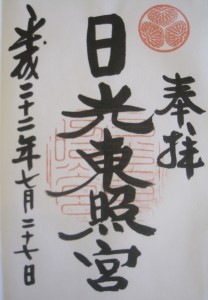 奉拝
日光東照宮
平成二十二年七月二十七日